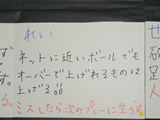 れい
ネットに近いボールでも
オーバーで上げれるものは
上げる!!
ず
す。
る。ミスしたら次のプレーに生かす